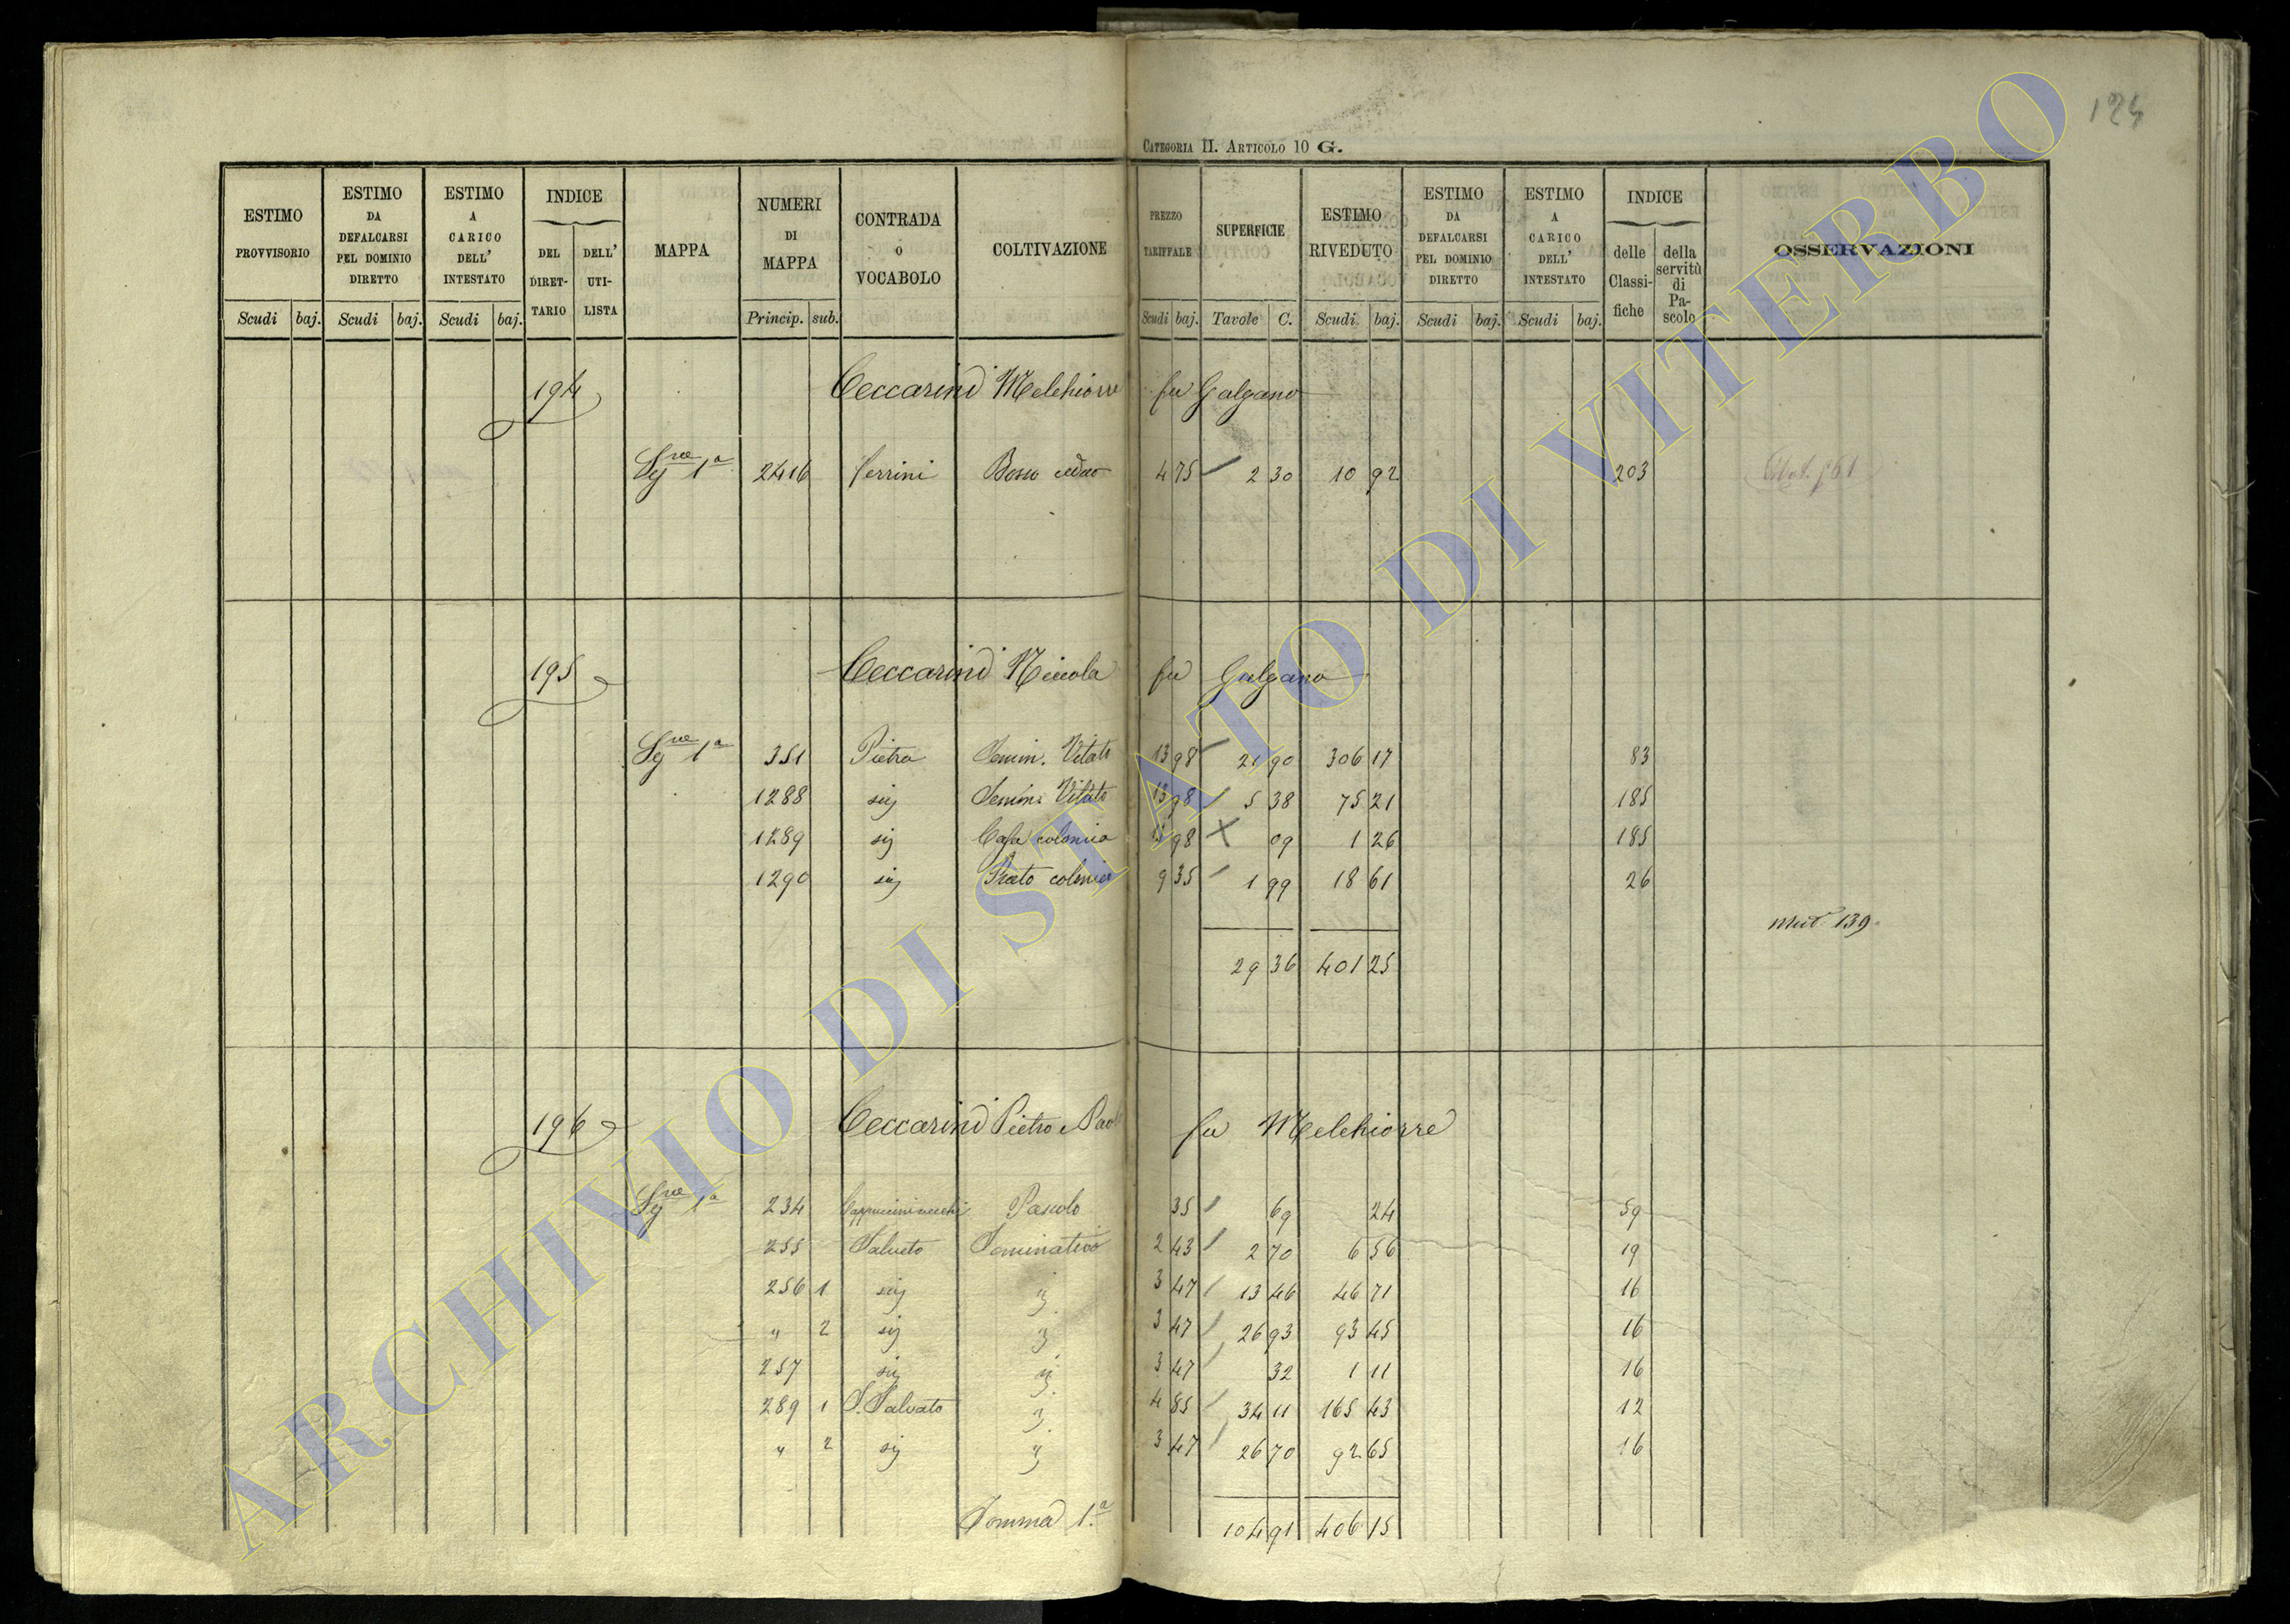 124
CATEGORIA II. ARTICOLO 10 G.
ESTIMO PROVVISORIO Scudi baj.
ESTIMO DA DEFALCARSI PEL DOMINIO DIRETTO Scudi baj.
ESTIMO A CARICO DELL' INTESTATO Scudi baj.
INDICE DEL DIRET-TARIO DELL' UTI-LISTA
MAPPA
NUMERI DI MAPPA Princip. sub.
CONTRADA o VOCABOLO
COLTIVAZIONE
PREZZO TARIFFALE Scudi baj.
SUPERFICIE Tavole C.
ESTIMO RIVEDUTO Scudi baj.
ESTIMO DA DEFALCARSI PEL DOMINIO DIRETTO Scudi baj.
ESTIMO A CARICO DELL' INTESTATO Scudi baj.
INDICE delle Classi-fiche della servitù di Pa-scolo
OSSERVAZIONI
194 Ceccarini Melchiorre fu Galgano
1a 2416 ferrini Bosco ceduo 4 75 2 30 10 92 203
195 Ceccarini Niccola fu Galgano
1a 351 Pietra Semin. Vitato 13 98 21 90 306 17 83
1288 sij Semin. Vitato 13 98 5 38 75 21 185
1289 sij Casa colonica 13 98 09 1 26 185
1290 sij Prato colonico 9 35 1 99 18 61 26
Mut. 139
29 36 401 25
196 Ceccarini Pietro e Paolo fu Melchiorre
1a 234 Cappuccini vecchi Pascolo 35 69 24 59
255 Salceto Seminativo 2 43 2 70 6 56 19
256 1 sij 3 47 13 46 46 71 16
" 2 sij 3 47 26 93 93 45 16
257 sij 3 47 32 1 11 16
289 1 S. Salvato 4 85 34 11 165 43 12
" 2 sij 3 47 26 70 92 65 16
Somma 1.a 104 91 406 15
ARCHIVIO DI STATO DI VITERBO